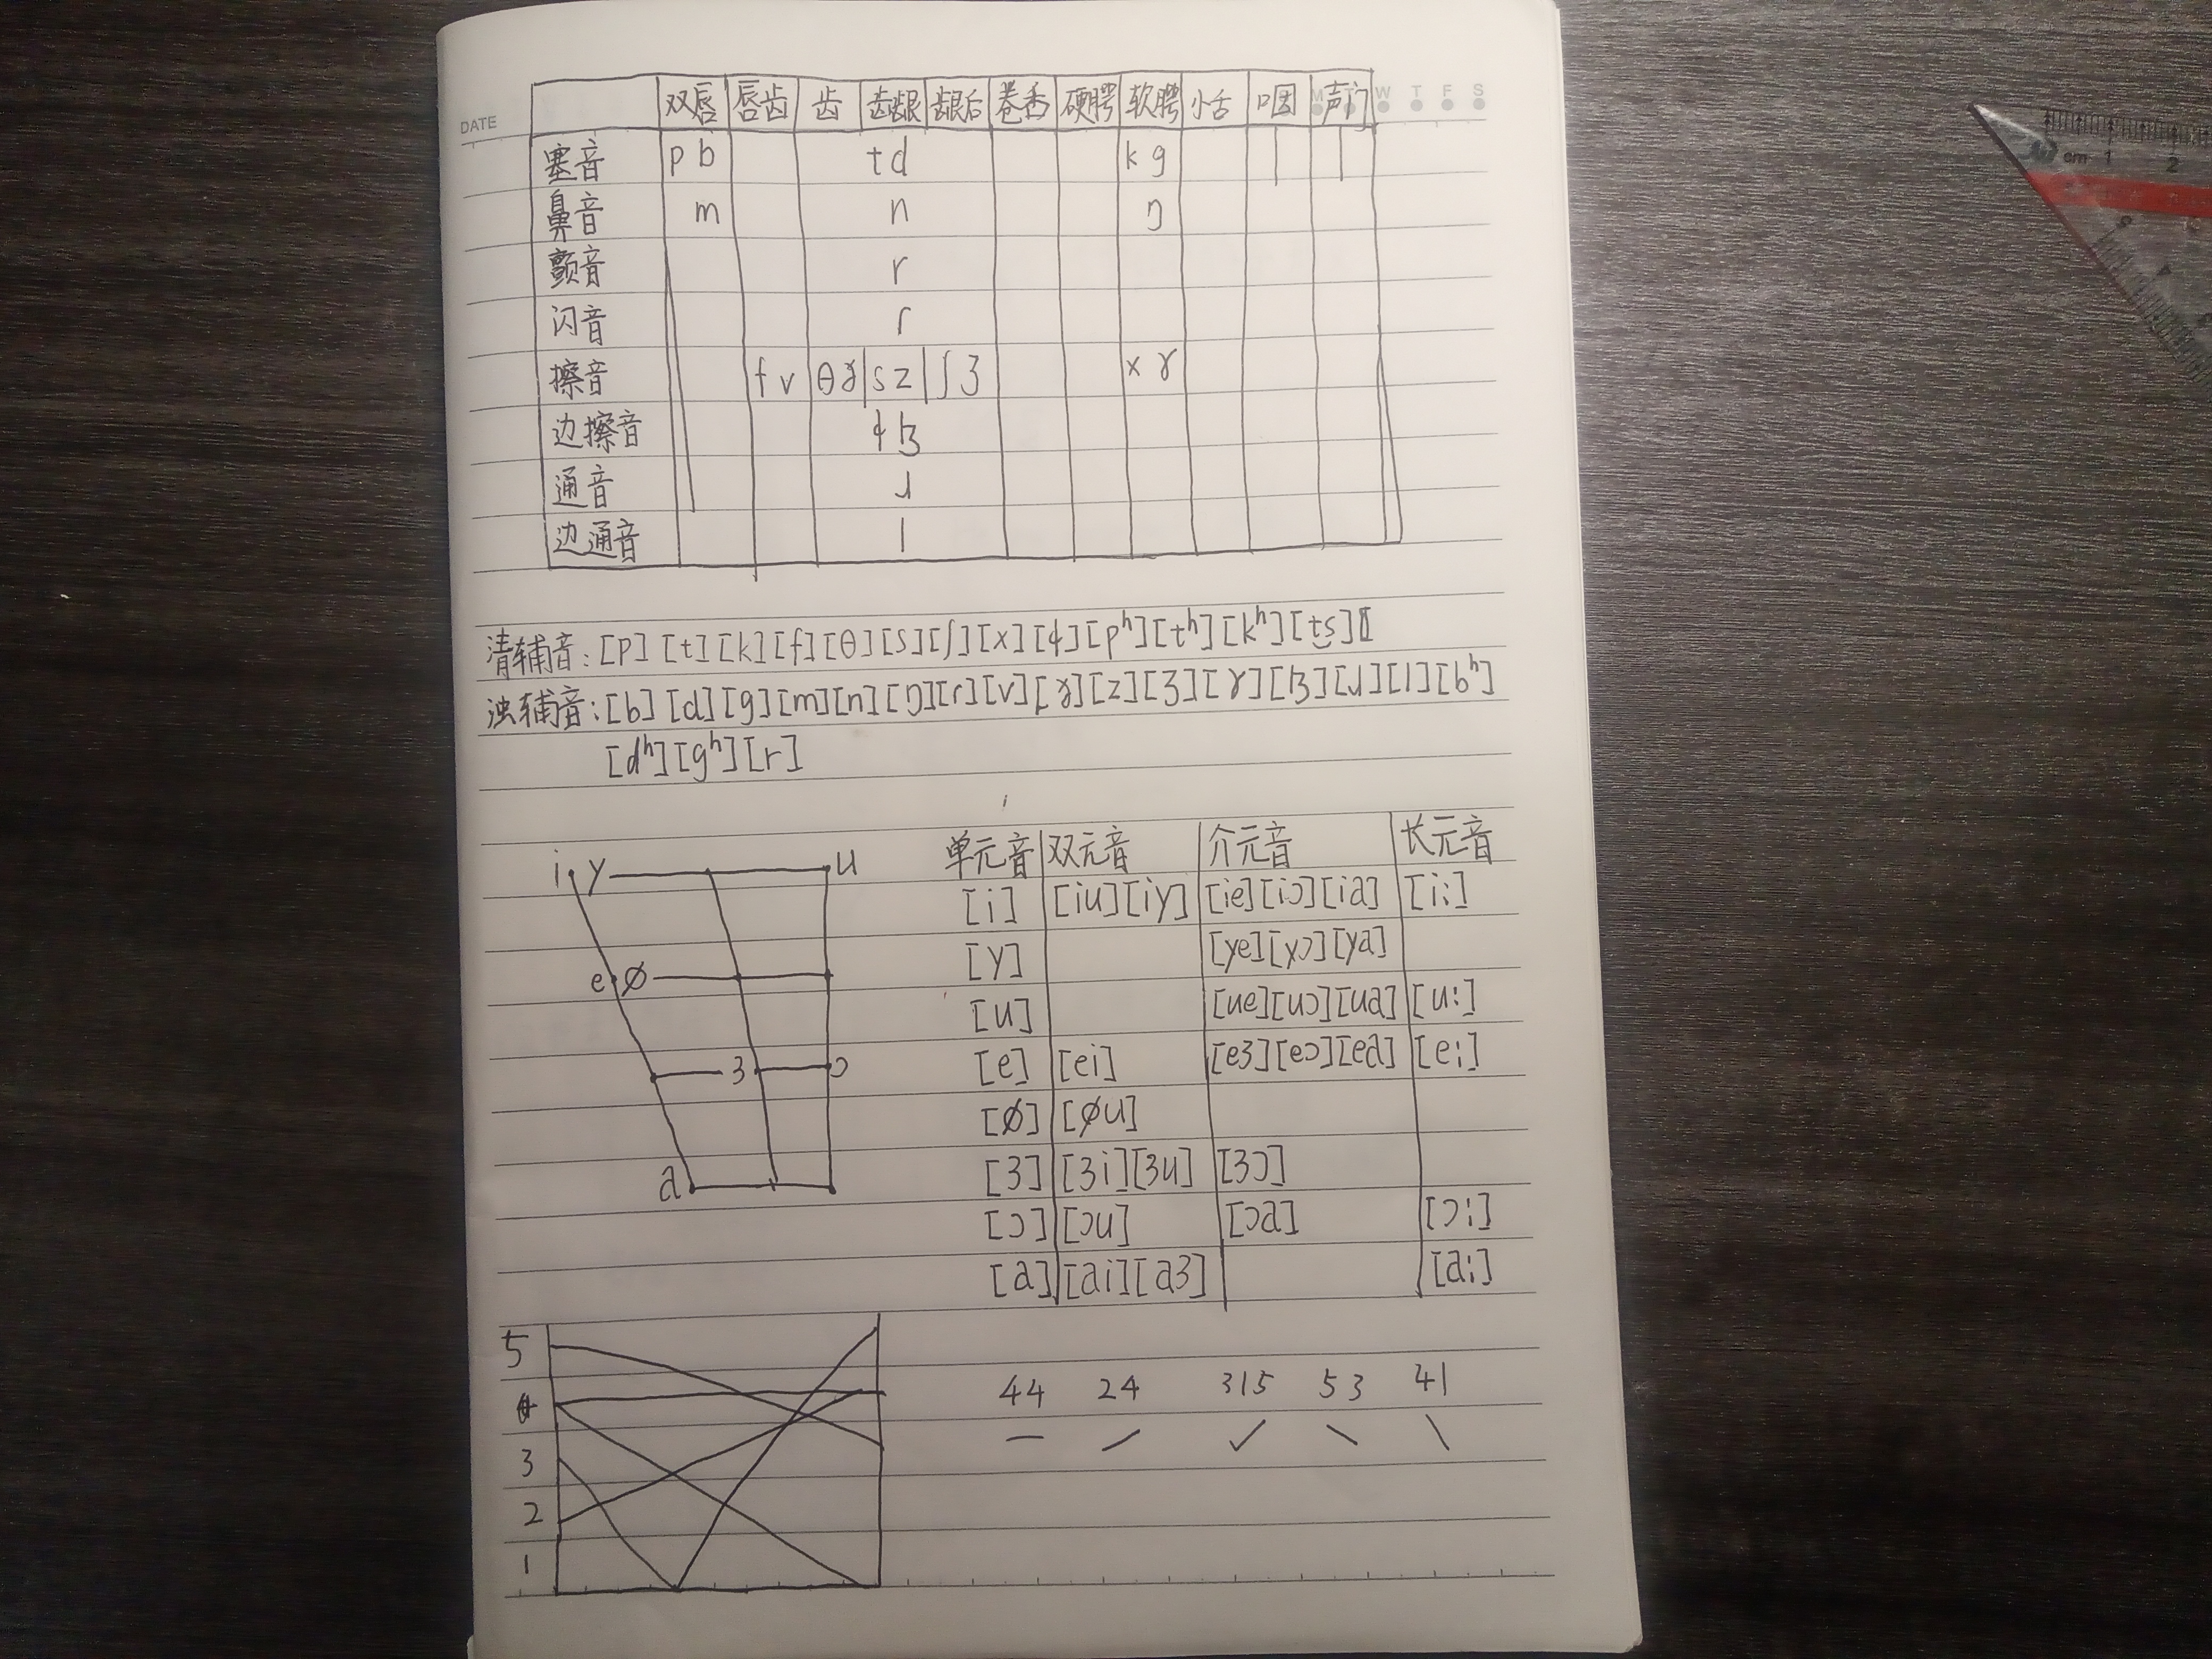 DATE M T W T F S
双唇 唇齿 齿 齿龈 龈后 卷舌 硬腭 软腭 小舌 咽 声门
塞音 p b t d k g
鼻音 m n ŋ
颤音 r
闪音 ɾ
擦音 f v θ ð s z ʃ ʒ x ɣ
边擦音 ɬ ɮ
通音 ɹ
边通音 l
清辅音:[p][t][k][f][θ][s][ʃ][x][ɬ][pʰ][tʰ][kʰ][t͜s]
浊辅音:[b][d][g][m][n][ŋ][ɾ][v][ð][z][ʒ][ɣ][ɮ][ɹ][l][bʰ]
[dʰ][gʰ][r]
i y u
e ø
ɜ ɔ
a
单元音 双元音 介元音 长元音
[i] [iu][iy] [ie][iɔ][ia] [i:]
[y] [ye][yɔ][ya]
[u] [ue][uɔ][ua] [u:]
[e] [ei] [eɜ][eɔ][ea] [e:]
[ø] [øu]
[ɜ] [ɜi][ɜu] [ɜɔ]
[ɔ] [ɔu] [ɔa] [ɔ:]
[a] [ai][aɜ] [a:]
5
4
3
2
1
44 24 315 53 41
cm 1 2